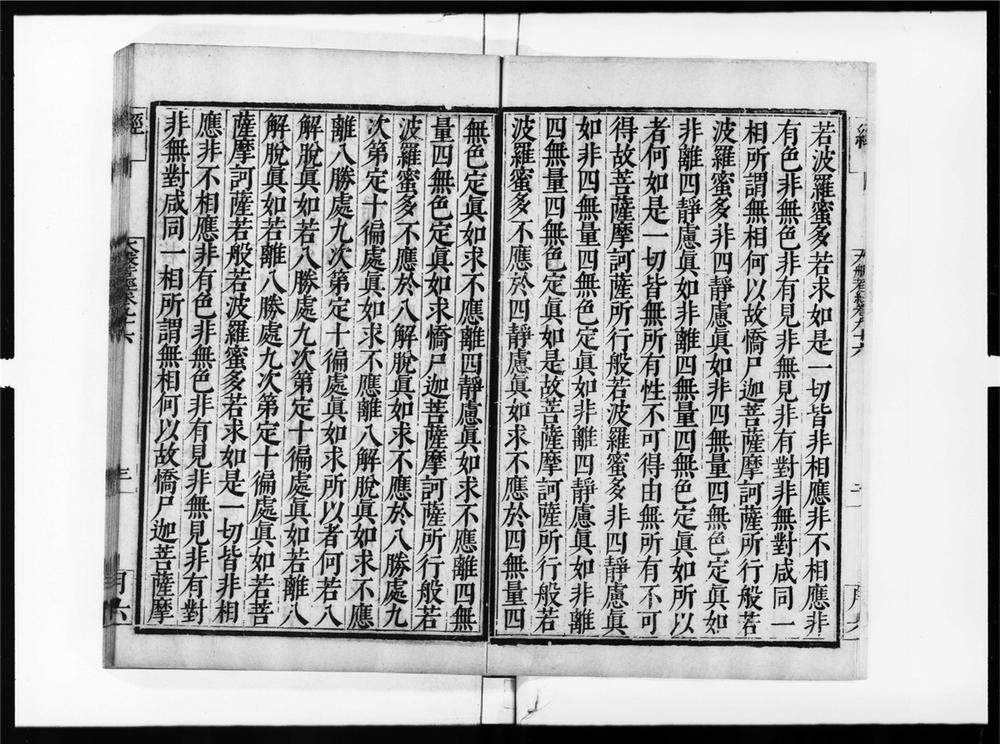 若波羅蜜多若求如是一切皆非相應非不相應非
有色非無色非有見非無見非有對非無對咸同一
相所謂無相何以故憍尸迦菩薩摩訶薩所行般若
波羅蜜多非四靜慮眞如非四無量四無色定眞如
非離四靜慮眞如非離四無量四無色定眞如所以
者何如是一切皆無所有性不可得由無所有不可
得故菩薩摩訶薩所行般若波羅蜜多非四靜慮眞
如非四無量四無色定眞如非離四靜慮眞如非離
四無量四無色定眞如是故菩薩摩訶薩所行般若
波羅蜜多不應於四靜慮眞如求不應於四無量四
無色定眞如求不應離四靜慮眞如求不應離四無
量四無色定眞如求憍尸迦菩薩摩訶薩所行般若
波羅蜜多不應於八解脫眞如求不應於八勝處九
次第定十徧處眞如求不應離八解脫眞如求不應
離八勝處九次第定十徧處眞如求所以者何若八
解脫眞如若八勝處九次第定十徧處眞如若離八
解脫眞如若離八勝處九次第定十徧處眞如若菩
薩摩訶薩若般若波羅蜜多若求如是一切皆非相
應非不相應非有色非無色非有見非無見非有對
非無對咸同一相所謂無相何以故憍尸迦菩薩摩
經
三
月六